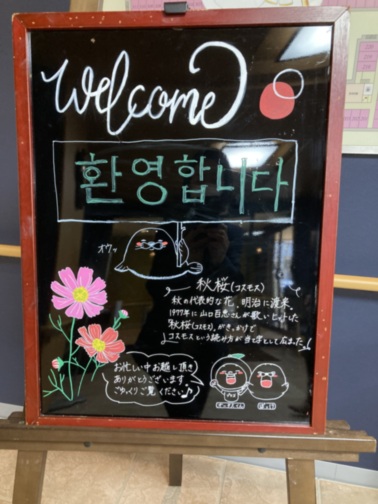 Welcome
환영합니다
オウッ
秋桜(コスモス)
秋の代表的な花。明治に渡来。
1977年に山口百恵さんが歌いヒットした
「秋桜(コスモス)」がきっかけで
コスモスという読み方が当て字として広まった
お忙しい中お越し頂き
ありがとうございます。
ごゆっくりご覧ください♪